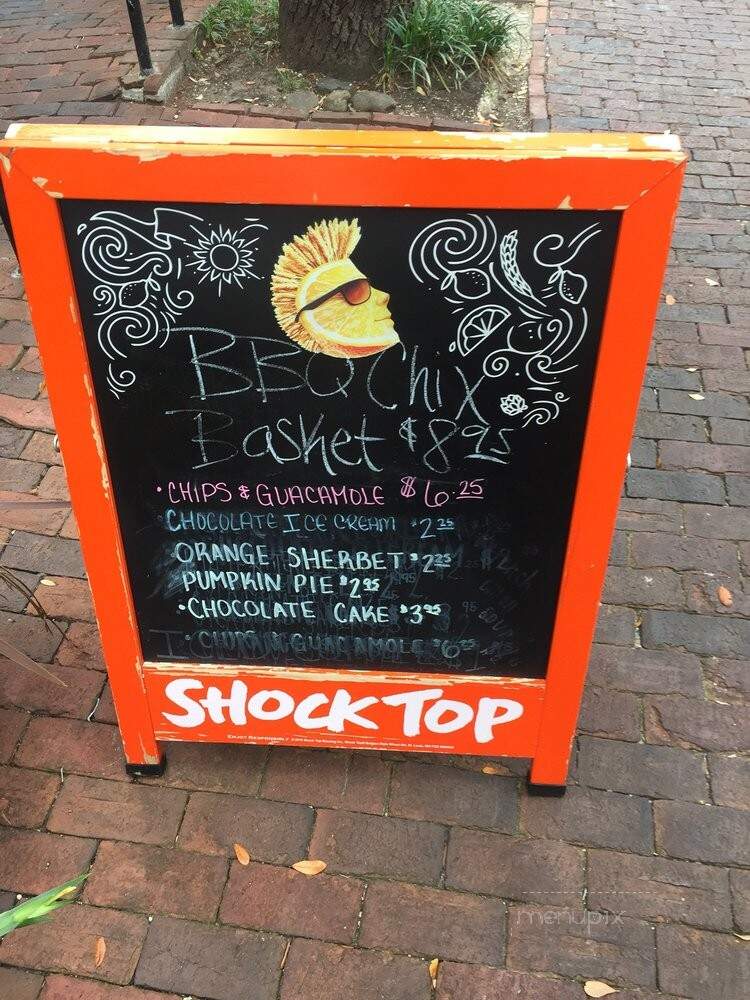 BBQ Chix
Basket $8.95
• CHIPS & GUACAMOLE $6.25
CHOCOLATE ICE CREAM $2.25
ORANGE SHERBET $2.25
PUMPKIN PIE $2.95
• CHOCOLATE CAKE $3.95
• CHIPS & GUACAMOLE $6.25
SHOCK TOP
ENJOY RESPONSIBLY
menupix